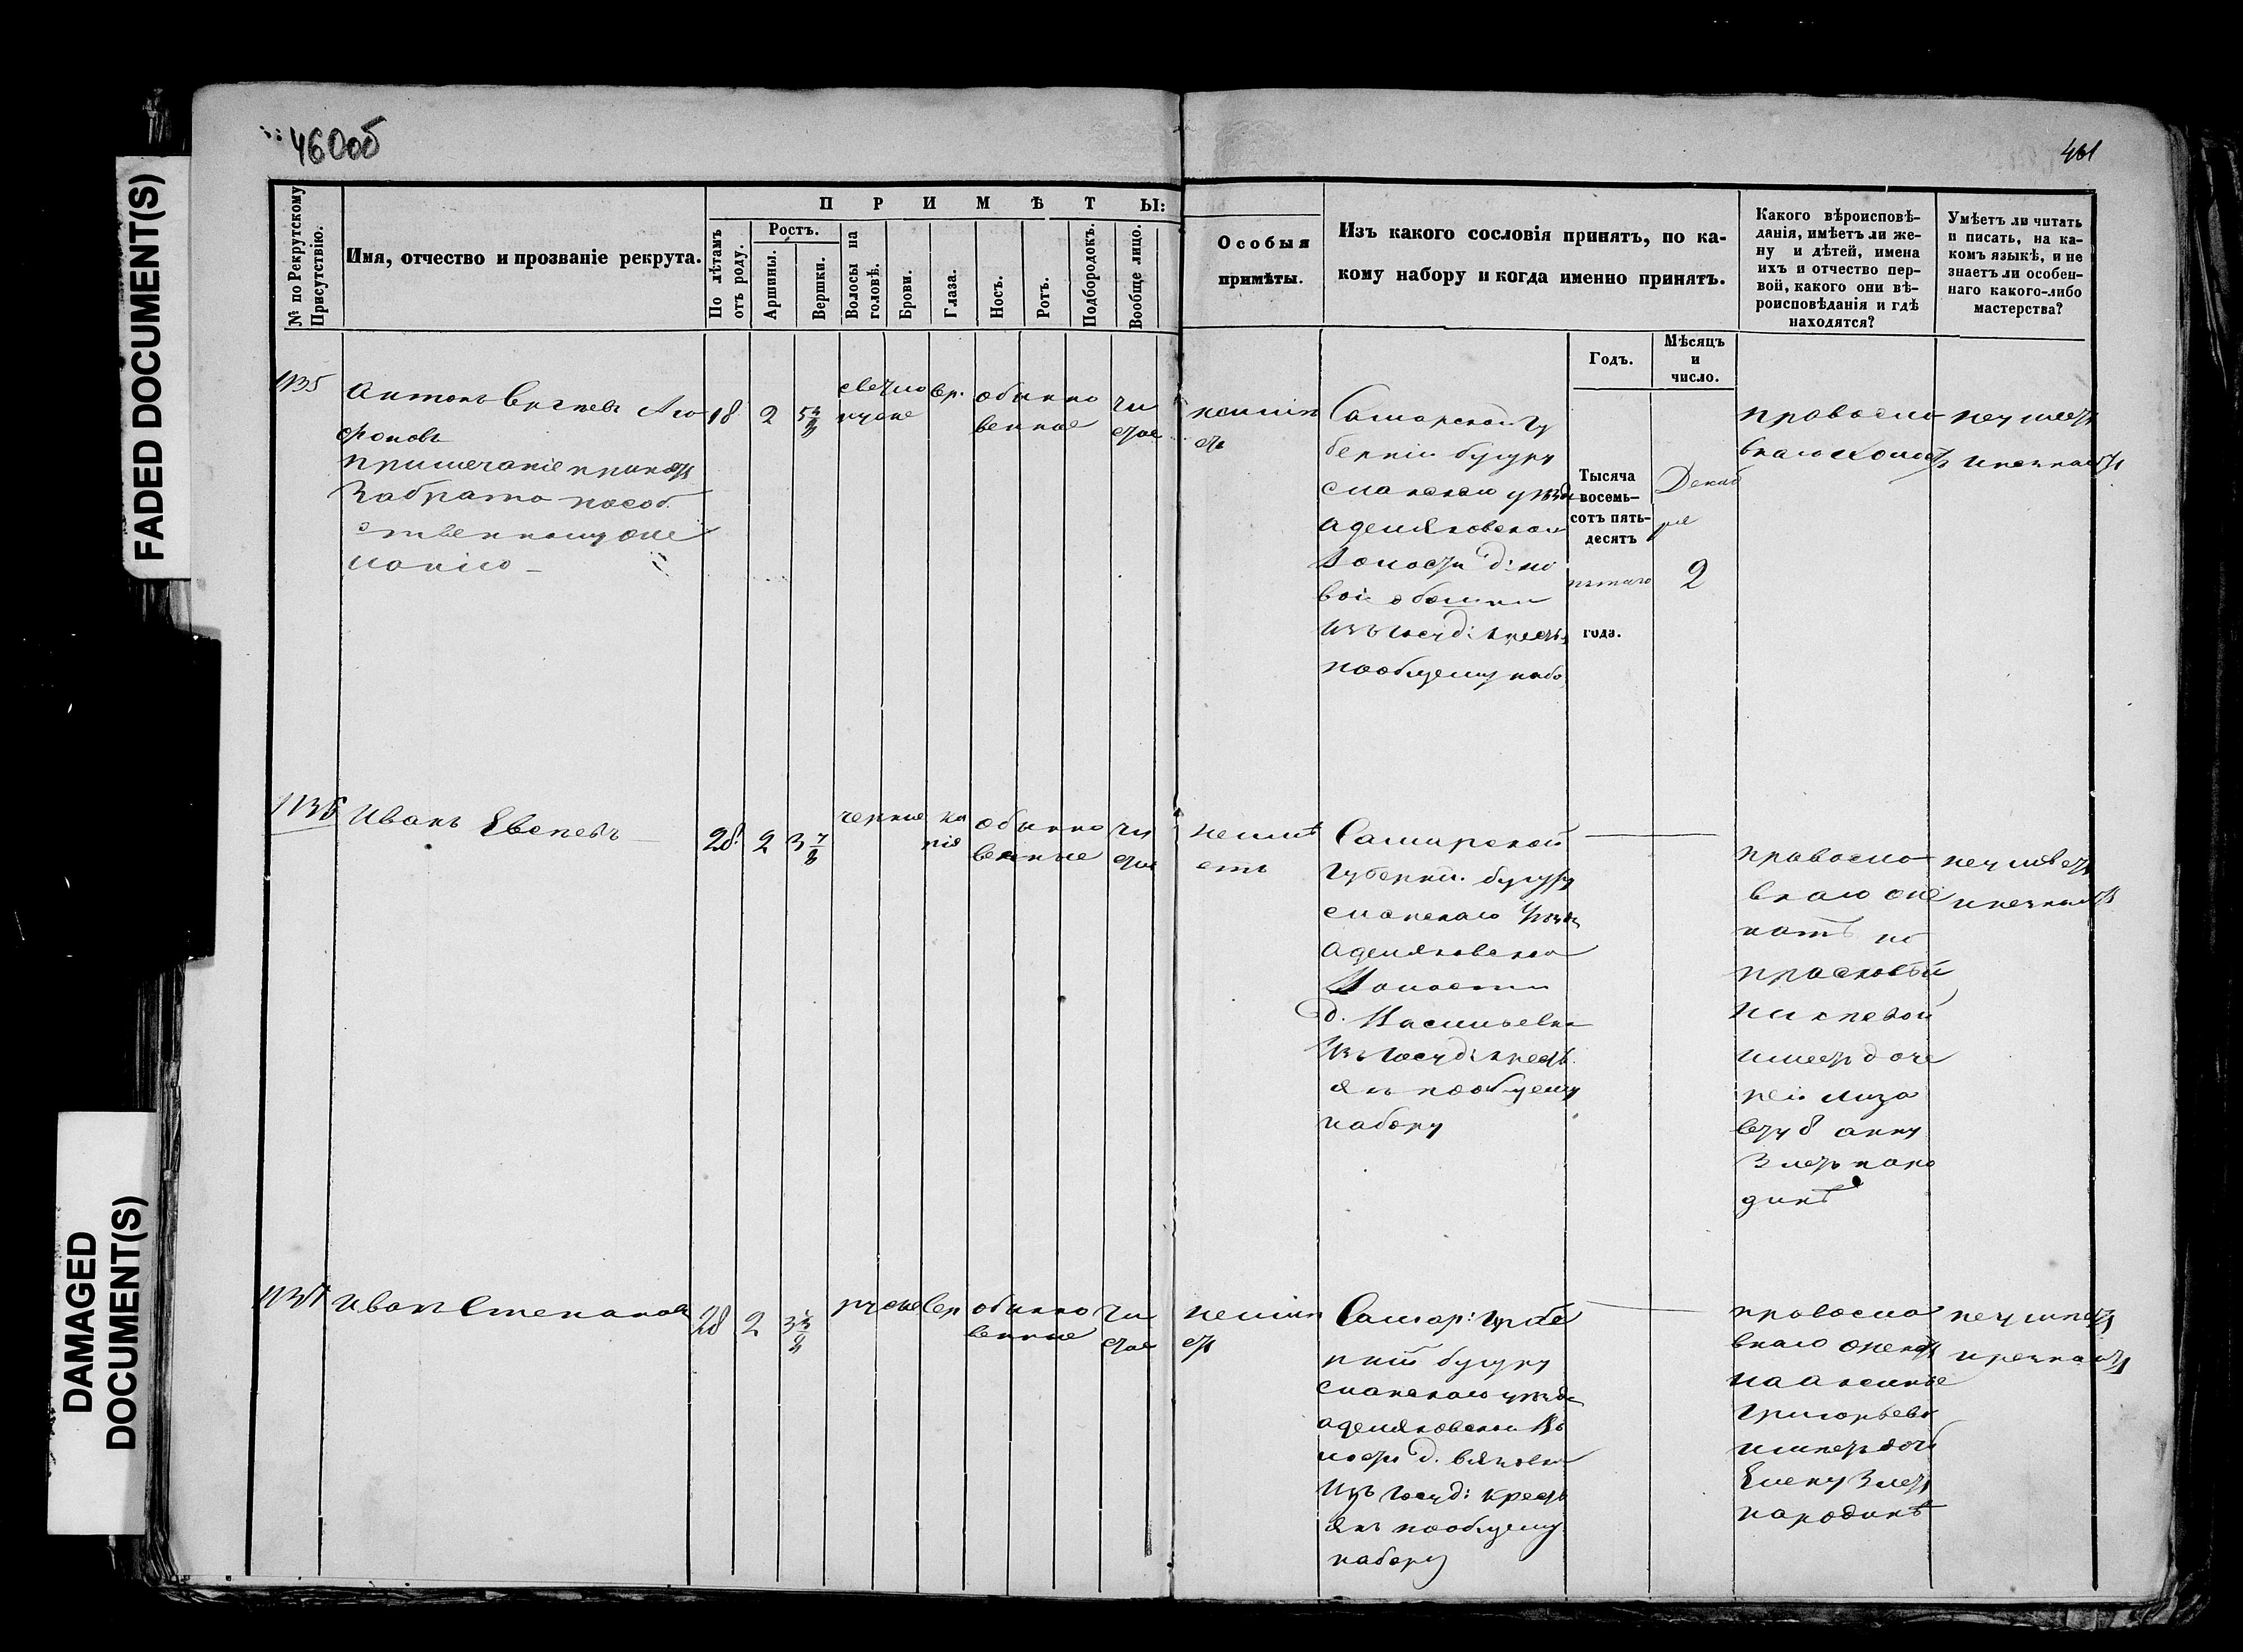 460об
461
FADED DOCUMENT(S)
DAMAGED
DOCUMENT(S)
№ по Рекрутскому
Присутствію.
Имя, отчество и прозваніе рекрута.
П Р И М Ѣ Т Ы:
По лѣтамъ
отъ роду.
Ростъ.
Аршины.
Вершки.
Волосы на
головѣ.
Брови.
Глаза.
Носъ.
Ротъ.
Подбородокъ.
Вообще лицо.
Особыя
примѣты.
Изъ какого сословія принятъ, по ка-
кому набору и когда именно принятъ.
Годъ.
Мѣсяцъ
и
число.
Какого вѣроисповѣ-
данія, имѣетъ ли же-
ну и дѣтей, имена
ихъ и отчество пер-
вой, какого они вѣ-
роисповѣданія и гдѣ
находятся?
Умѣетъ ли читать
и писать, на ка-
комъ языкѣ, и не
знаетъ ли особен-
наго какого-либо
мастерства?
1135
Антонъ
фоновъ
примечаніе принятъ
За брата по соб
ственному же
ланію
18
2
светло
русые
обыкно
венные
чи
стое
Самарской гу
берніи бугуру
сланскаго уѣзда
аделяковской
Волости
изъ госуд: крестья
по общему набо
Тысяча
восемь-
сотъ пять-
десятъ
пятаго
года.
Декаб
ря
2
правосла
внаго холостъ
неумеетъ
и незнаетъ
1136
Иванъ
28
2
3 7/8
черные
ка
ріе
обыкно
венные
чи
стое
неимѣ
етъ
Самарской
Губерніи бугуру
сланскаго Уѣзда
аделяковской
Волости
д. Васильевки
Изъ госуд: крестья
янъ по общему
набору
правосла
внаго же
натъ на
прасковьи
имеетъ доче
рей лиза
вету 8 анну
3 летъ на ро
динѣ
неумѣетъ
и незнаетъ
1137
Иванъ Степановъ
28
2
русые
обыкно
венные
чи
стое
неимѣ
етъ
Самар: губе
рніи бугуру
сланскаго уѣзда
аделяковской Во
лости д.
изъ госуд: крестья
янъ по общему
набору
правосла
внаго женатъ
на аксинье
Григорьевой
имѣетъ дочь
Елену 3 летъ
на родинѣ
неумѣетъ
и незнаетъ